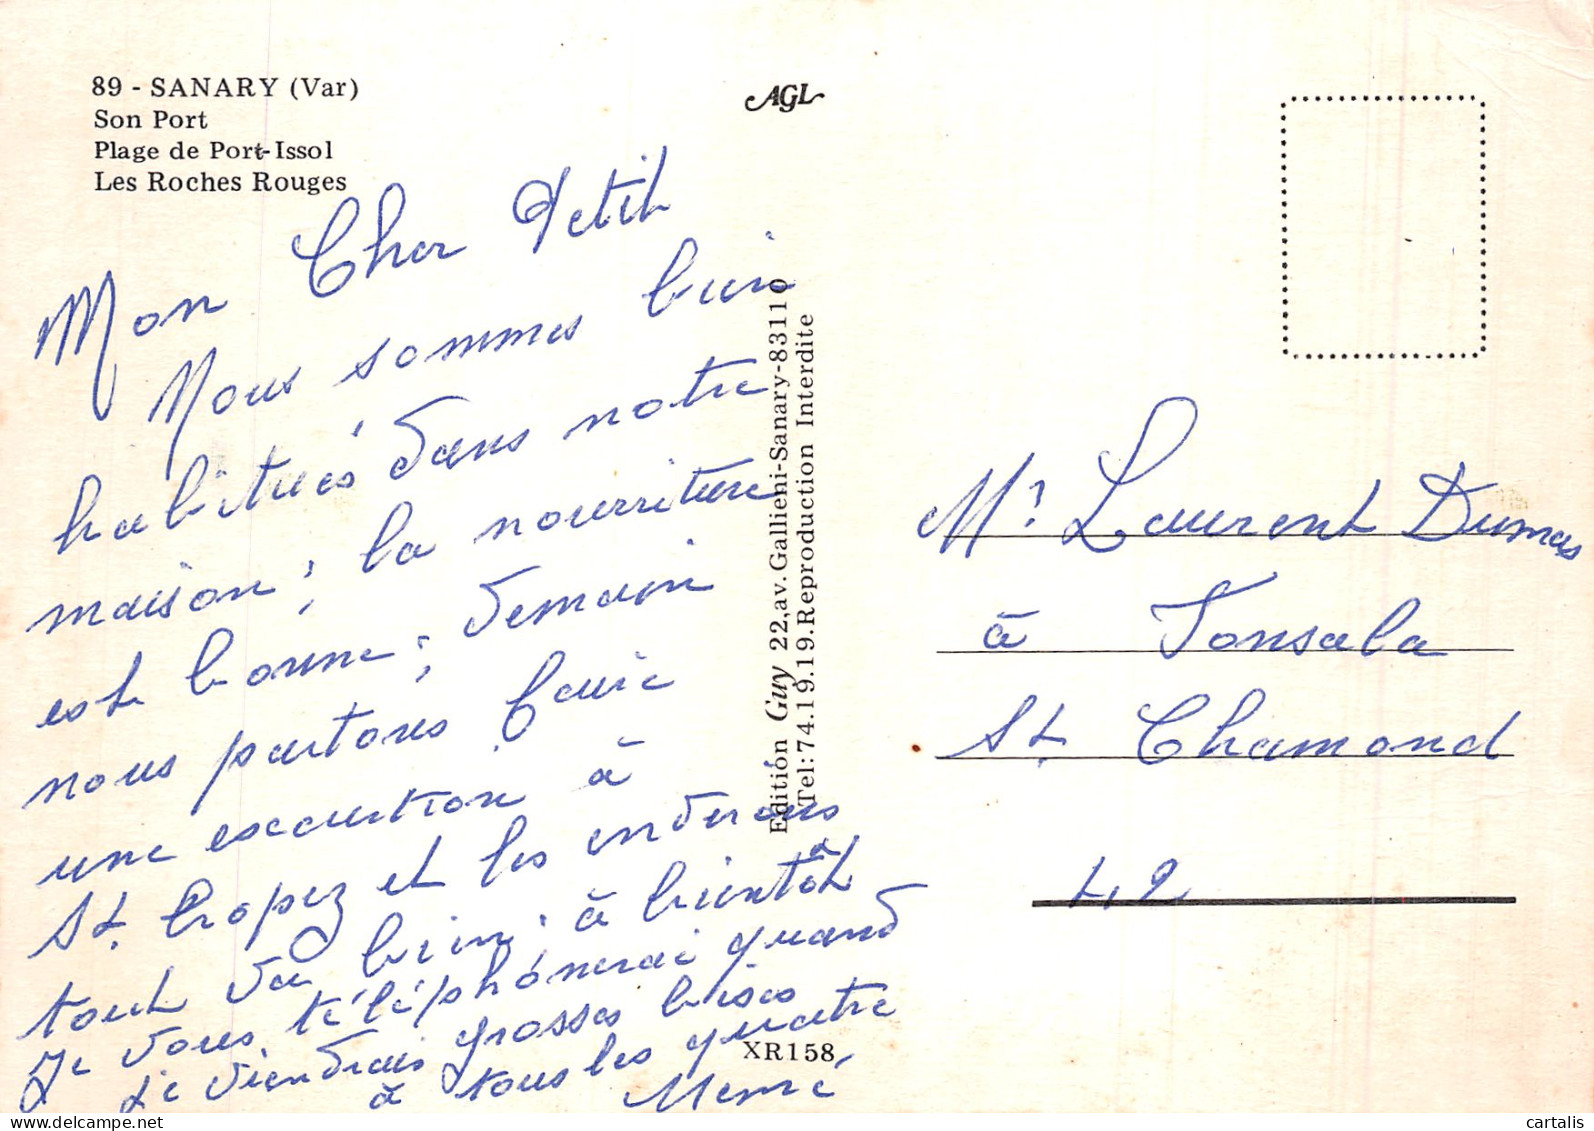 89 - SANARY (Var)
Son Port
Plage de Port-Issol
Les Roches Rouges
AGL
Mon Cher Petit
Nous sommes bien
habitués dans notre
maison ; la nourriture
est bonne ; demain
nous partons faire
une excurtion à
St. Tropez et les enderons
tout va bien ; à bientôt
Je vous téléphônerai quand
je viendrai grosses bises
à tous les quatre
Mémé
Edition Guy 22,av.Gallieni-Sanary-83110
Tel:74.19.19.Reproduction Interdite
XR158
Mr Laurent Dumas
à Fonsala
St. Chamond
42
cartalis www.delcampe.net